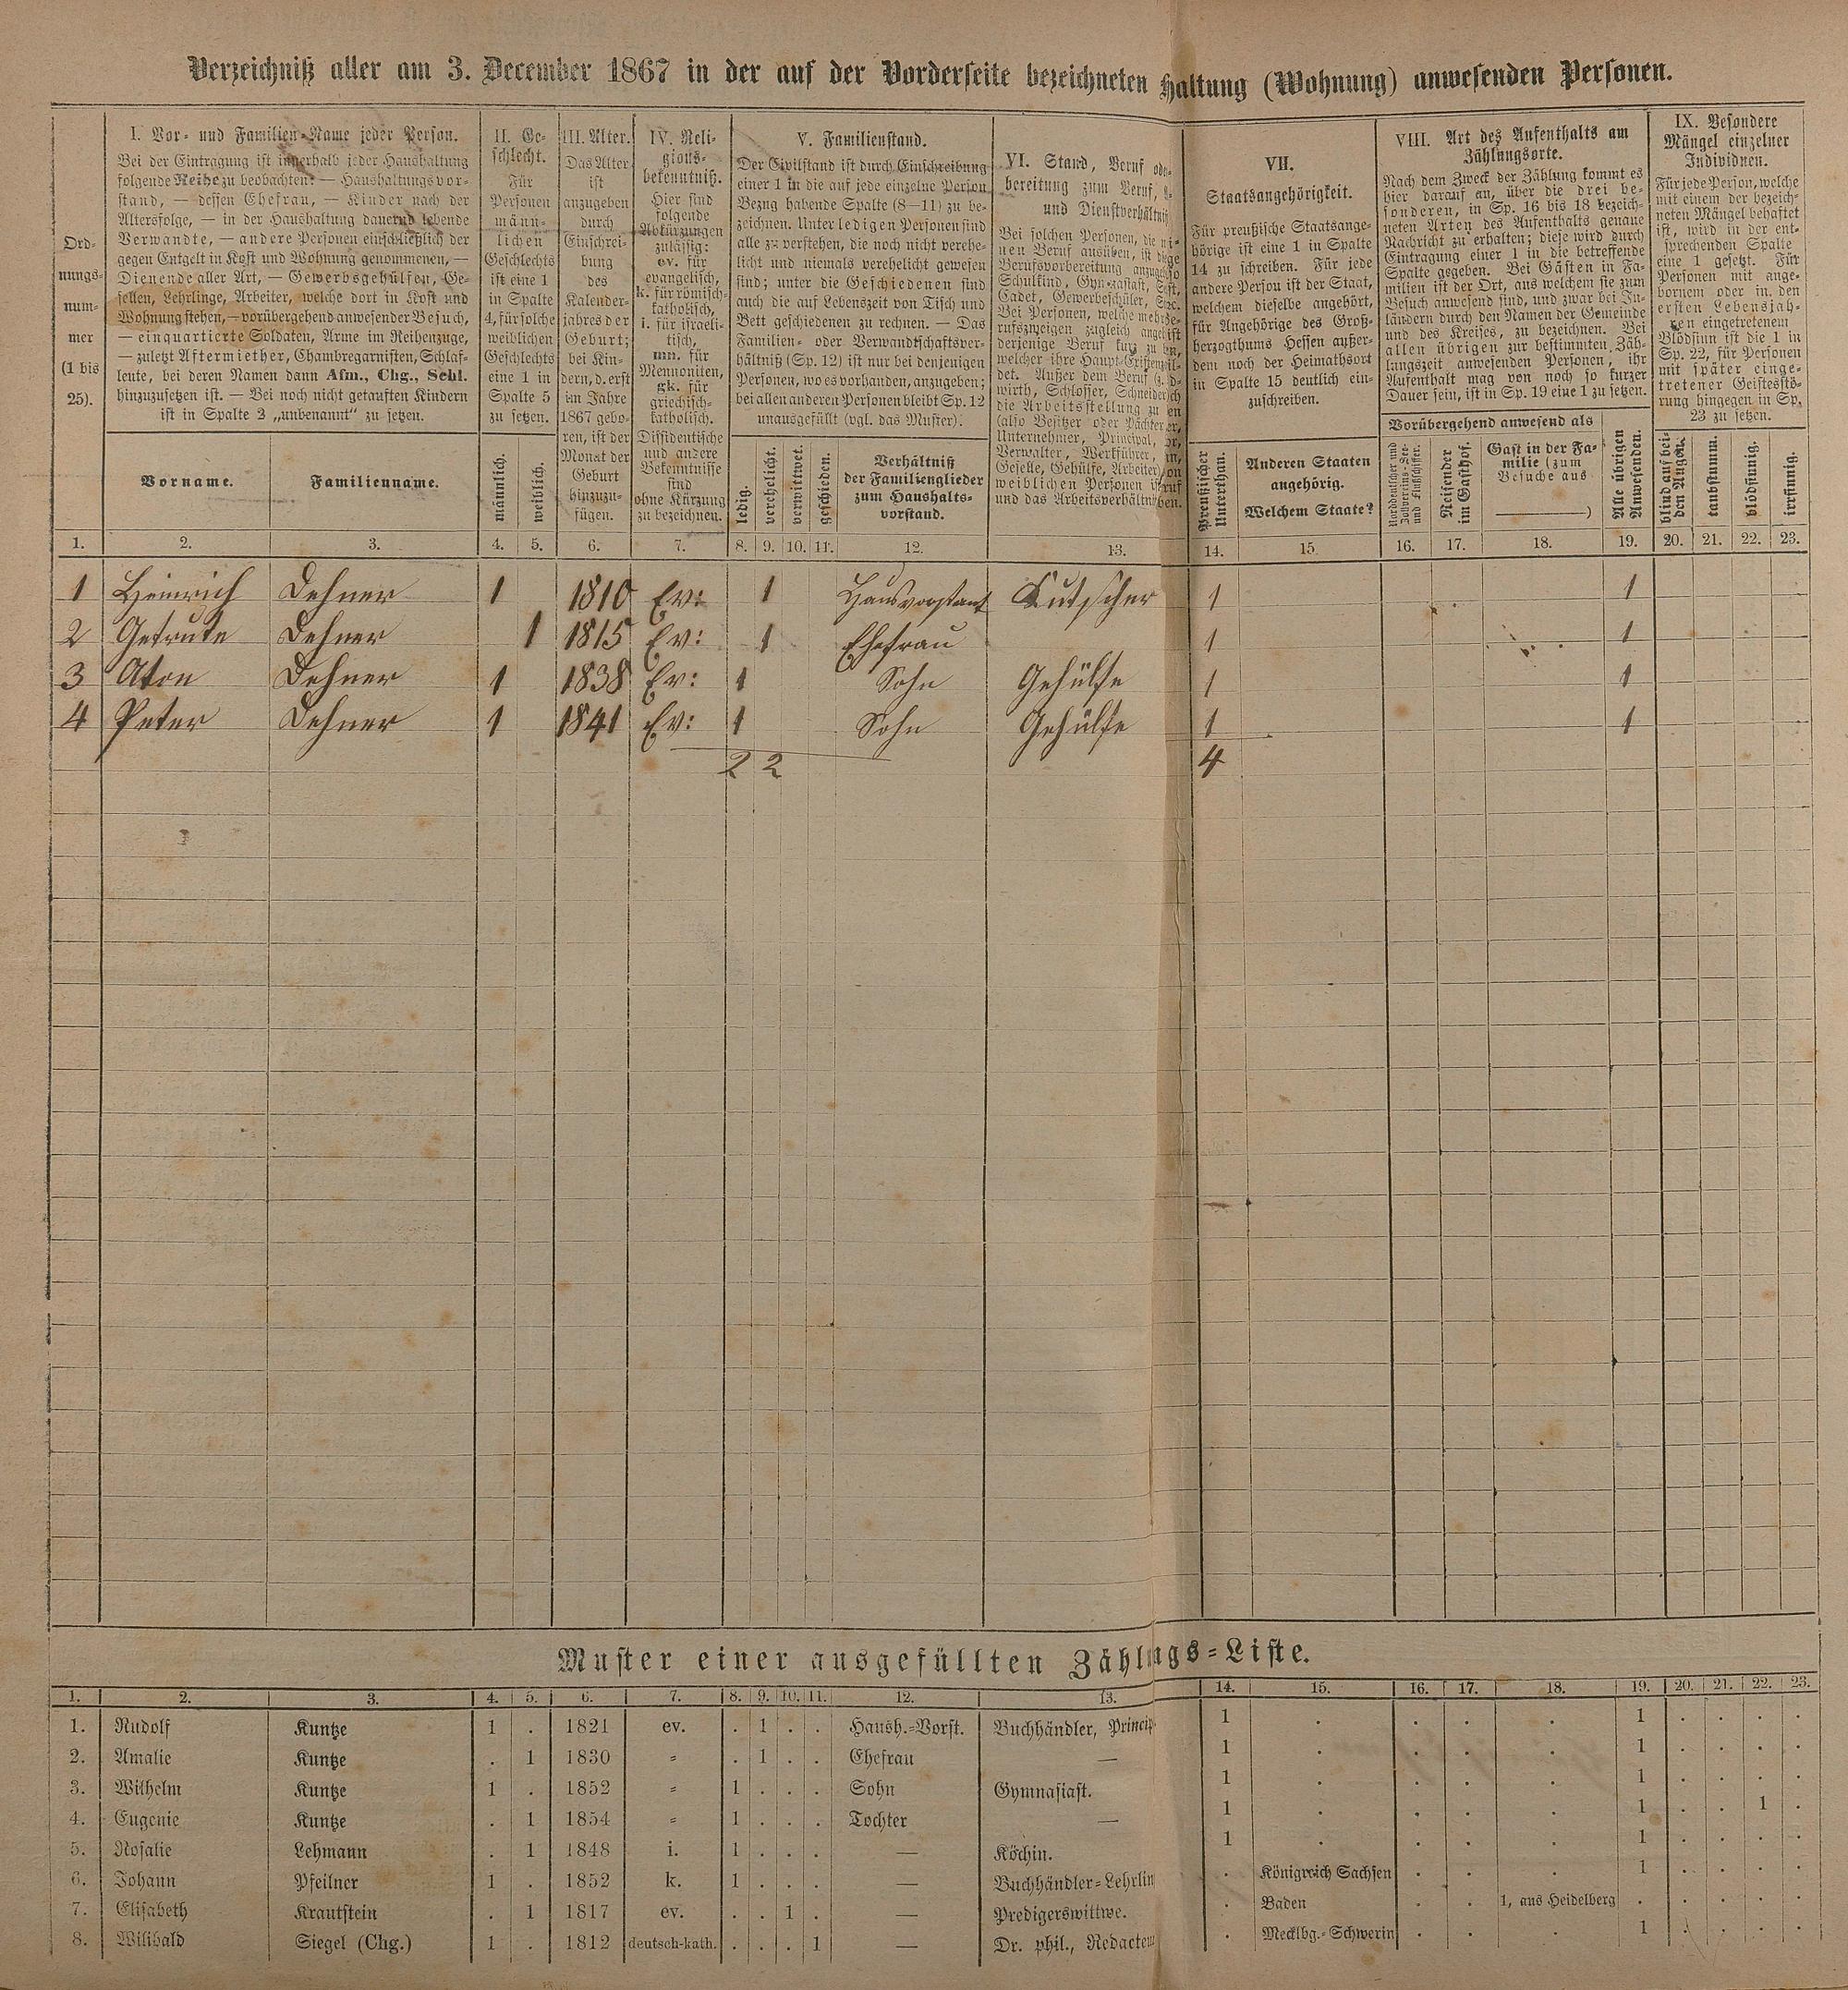 Verzeichniß aller am 3. December 1867 in der auf der Vorderseite bezeichneten Haltung (Wohnung) anwesenden Personen.
Ord-
nungs-
num-
mer
(1 bis
25).
I. Vor- und Familien-Name jeder Person.
Bei der Eintragung ist innerhalb jeder Haushaltung
folgende Reihe zu beobachten: — Haushaltungsvor-
stand, — dessen Ehefrau, — Kinder nach der
Altersfolge, — in der Haushaltung dauernd lebende
Verwandte, — andere Personen einschließlich der
gegen Entgelt in Kost und Wohnung genommenen, —
Dienende aller Art, — Gewerbsgehülfen, Ge-
sellen, Lehrlinge, Arbeiter, welche dort in Kost und
Wohnung stehen, — vorübergehend anwesender Besuch,
— einquartierte Soldaten, Arme im Reihenzuge,
— zuletzt Aftermiether, Chambregarnisten, Schlaf-
leute, bei deren Namen dann Afm., Chg., Schl.
hinzuzusetzen ist. — Bei noch nicht getauften Kindern
ist in Spalte 3 „unbenannt“ zu setzen.
Vorname.
Familienname.
II. Ge-
schlecht.
Für
Personen
männ-
lichen
Geschlechts
ist eine 1
in Spalte
4, für solche
weiblichen
Geschlechts
eine 1 in
Spalte 5
zu setzen.
männlich.
weiblich.
III. Alter.
Das Alter
ist
anzugeben
durch
Einschrei-
bung
des
Kalender-
jahres der
Geburt;
bei Kin-
dern, d. erst
im Jahre
1867 gebo-
ren, ist der
Monat der
Geburt
hinzuzu-
fügen.
IV. Reli-
gions-
bekenntniß.
Hier sind
folgende
Abkürzungen
zulässig:
ev. für
evangelisch,
k. für römisch-
katholisch,
i. für israeli-
tisch,
mn. für
Mennoniten,
gk. für
griechisch-
katholisch.
Dissidentische
und andere
Bekenntnisse
sind
ohne Kürzung
zu bezeichnen.
V. Familienstand.
Der Civilstand ist durch Einschreibung
einer 1 in die auf jede einzelne Person
Bezug habende Spalte (8—11) zu be-
zeichnen. Unter ledigen Personen sind
alle zu verstehen, die noch nicht verehe-
licht und niemals verehelicht gewesen
sind; unter die Geschiedenen sind
auch die auf Lebenszeit von Tisch und
Bett geschiedenen zu rechnen. — Das
Familien- oder Verwandtschaftsver-
hältniß (Sp. 12) ist nur bei denjenigen
Personen, wo es vorhanden, anzugeben;
bei allen anderen Personen bleibt Sp. 12
unausgefüllt (vgl. das Muster).
ledig.
verehelicht.
verwittwet.
geschieden.
Verhältniß
der Familienglieder
zum Haushalts-
vorstand.
VI. Stand, Beruf oder
bereitung zum Beruf,
und Dienstverhältniß
Bei solchen Personen, die
nen Beruf ausüben, ist
Berufsvorbereitung
Schulkind, Gymnasiast,
Cadet, Gewerbeschüler,
Bei Personen, welche
rufszweigen zugleich
derjenige Beruf kurz zu
welcher ihre Haupt-
det. Außer dem Beruf
wirth, Schlosser, Schneider
die Arbeitsstellung zu
(also Besitzer oder Pächter
Unternehmer, Principal,
Verwalter, Werkführer,
Geselle, Gehülfe, Arbeiter)
weiblichen Personen
und das Arbeitsverhältniß
VII.
Staatsangehörigkeit.
Für preußische Staatsange-
hörige ist eine 1 in Spalte
14 zu schreiben. Für jede
andere Person ist der Staat,
welchem dieselbe angehört,
für Angehörige des Groß-
herzogthums Hessen außer-
dem noch der Heimathsort
in Spalte 15 deutlich ein-
zuschreiben.
Preußischer
Unterthan.
Anderen Staaten
angehörig.
Welchem Staate?
VIII. Art des Aufenthalts am
Zählungsorte.
Nach dem Zweck der Zählung kommt es
hier darauf an, über die drei be-
sonderen, in Sp. 16 bis 18 bezeich-
neten Arten des Aufenthalts genaue
Nachricht zu erhalten; diese wird durch
Eintragung einer 1 in die betreffende
Spalte gegeben. Bei Gästen in Fa-
milien ist der Ort, aus welchem sie zum
Besuch anwesend sind, und zwar bei In-
ländern durch den Namen der Gemeinde
und des Kreises, zu bezeichnen. Bei
allen übrigen zur bestimmten Zäh-
lungszeit anwesenden Personen, ihr
Aufenthalt mag von noch so kurzer
Dauer sein, ist in Sp. 19 eine 1 zu setzen.
Vorübergehend anwesend als
Norddeutscher und
Zollvereins-See-
und Flußschiffer.
Reisender
im Gasthof.
Gast in der Fa-
milie (zum
Besuche aus
)
Alle übrigen
Anwesenden.
IX. Besondere
Mängel einzelner
Individuen.
Für jede Person, welche
mit einem der bezeich-
neten Mängel behaftet
ist, wird in der ent-
sprechenden Spalte
eine 1 gesetzt. Für
Personen mit ange-
bornem oder in den
ersten Lebensjah-
ren eingetretenem
Blödsinn ist die 1 in
Sp. 22, für Personen
mit später einge-
tretener Geistesstö-
rung hingegen in Sp.
23 zu setzen.
blind auf bei-
den Augen.
taubstumm.
blödsinnig.
irrsinnig.
1. 2. 3. 4. 5. 6. 7. 8. 9. 10. 11. 12. 13. 14. 15. 16. 17. 18. 19. 20. 21. 22. 23.
1 Heinrich Dehner 1 1810 Ev: 1 Hausvorstant Kutscher 1 1
2 Getrute Dehner 1 1815 Ev: 1 Ehefrau 1 1
3 Aton Dehner 1 1838 Ev: 1 Sohn Gehülfe 1 1
4 Peter Dehner 1 1841 Ev: 1 Sohn Gehülfe 1 1
2 2 4
Muster einer ausgefüllten Zählungs-Liste.
1. 2. 3. 4. 5. 6. 7. 8. 9. 10. 11. 12. 13. 14. 15. 16. 17. 18. 19. 20. 21. 22. 23.
1. Rudolf Kuntze 1 . 1821 ev. . 1 . . Haush.-Vorst. Buchhändler, Princip 1 . . . . 1 . . . .
2. Amalie Kuntze . 1 1830 " . 1 . . Ehefrau — 1 . . . . 1 . . . .
3. Wilhelm Kuntze 1 . 1852 " 1 . . . Sohn Gymnasiast. 1 . . . . 1 . . . .
4. Eugenie Kuntze . 1 1854 " 1 . . . Tochter — 1 . . . . 1 . . 1 .
5. Rosalie Lehmann . 1 1848 i. 1 . . . — Köchin. 1 . . . . 1 . . . .
6. Johann Pfeilner 1 . 1852 k. 1 . . . — Buchhändler-Lehrlin . Königreich Sachsen . . . 1 . . . .
7. Elisabeth Krautstein . 1 1817 ev. . . 1 . — Predigerswittwe. . Baden . . 1, aus Heidelberg . . . . .
8. Wilibald Siegel (Chg.) 1 . 1812 deutsch-kath. . . . 1 — Dr. phil., Redacteu . Mecklbg.-Schwerin . . . 1 . . . .